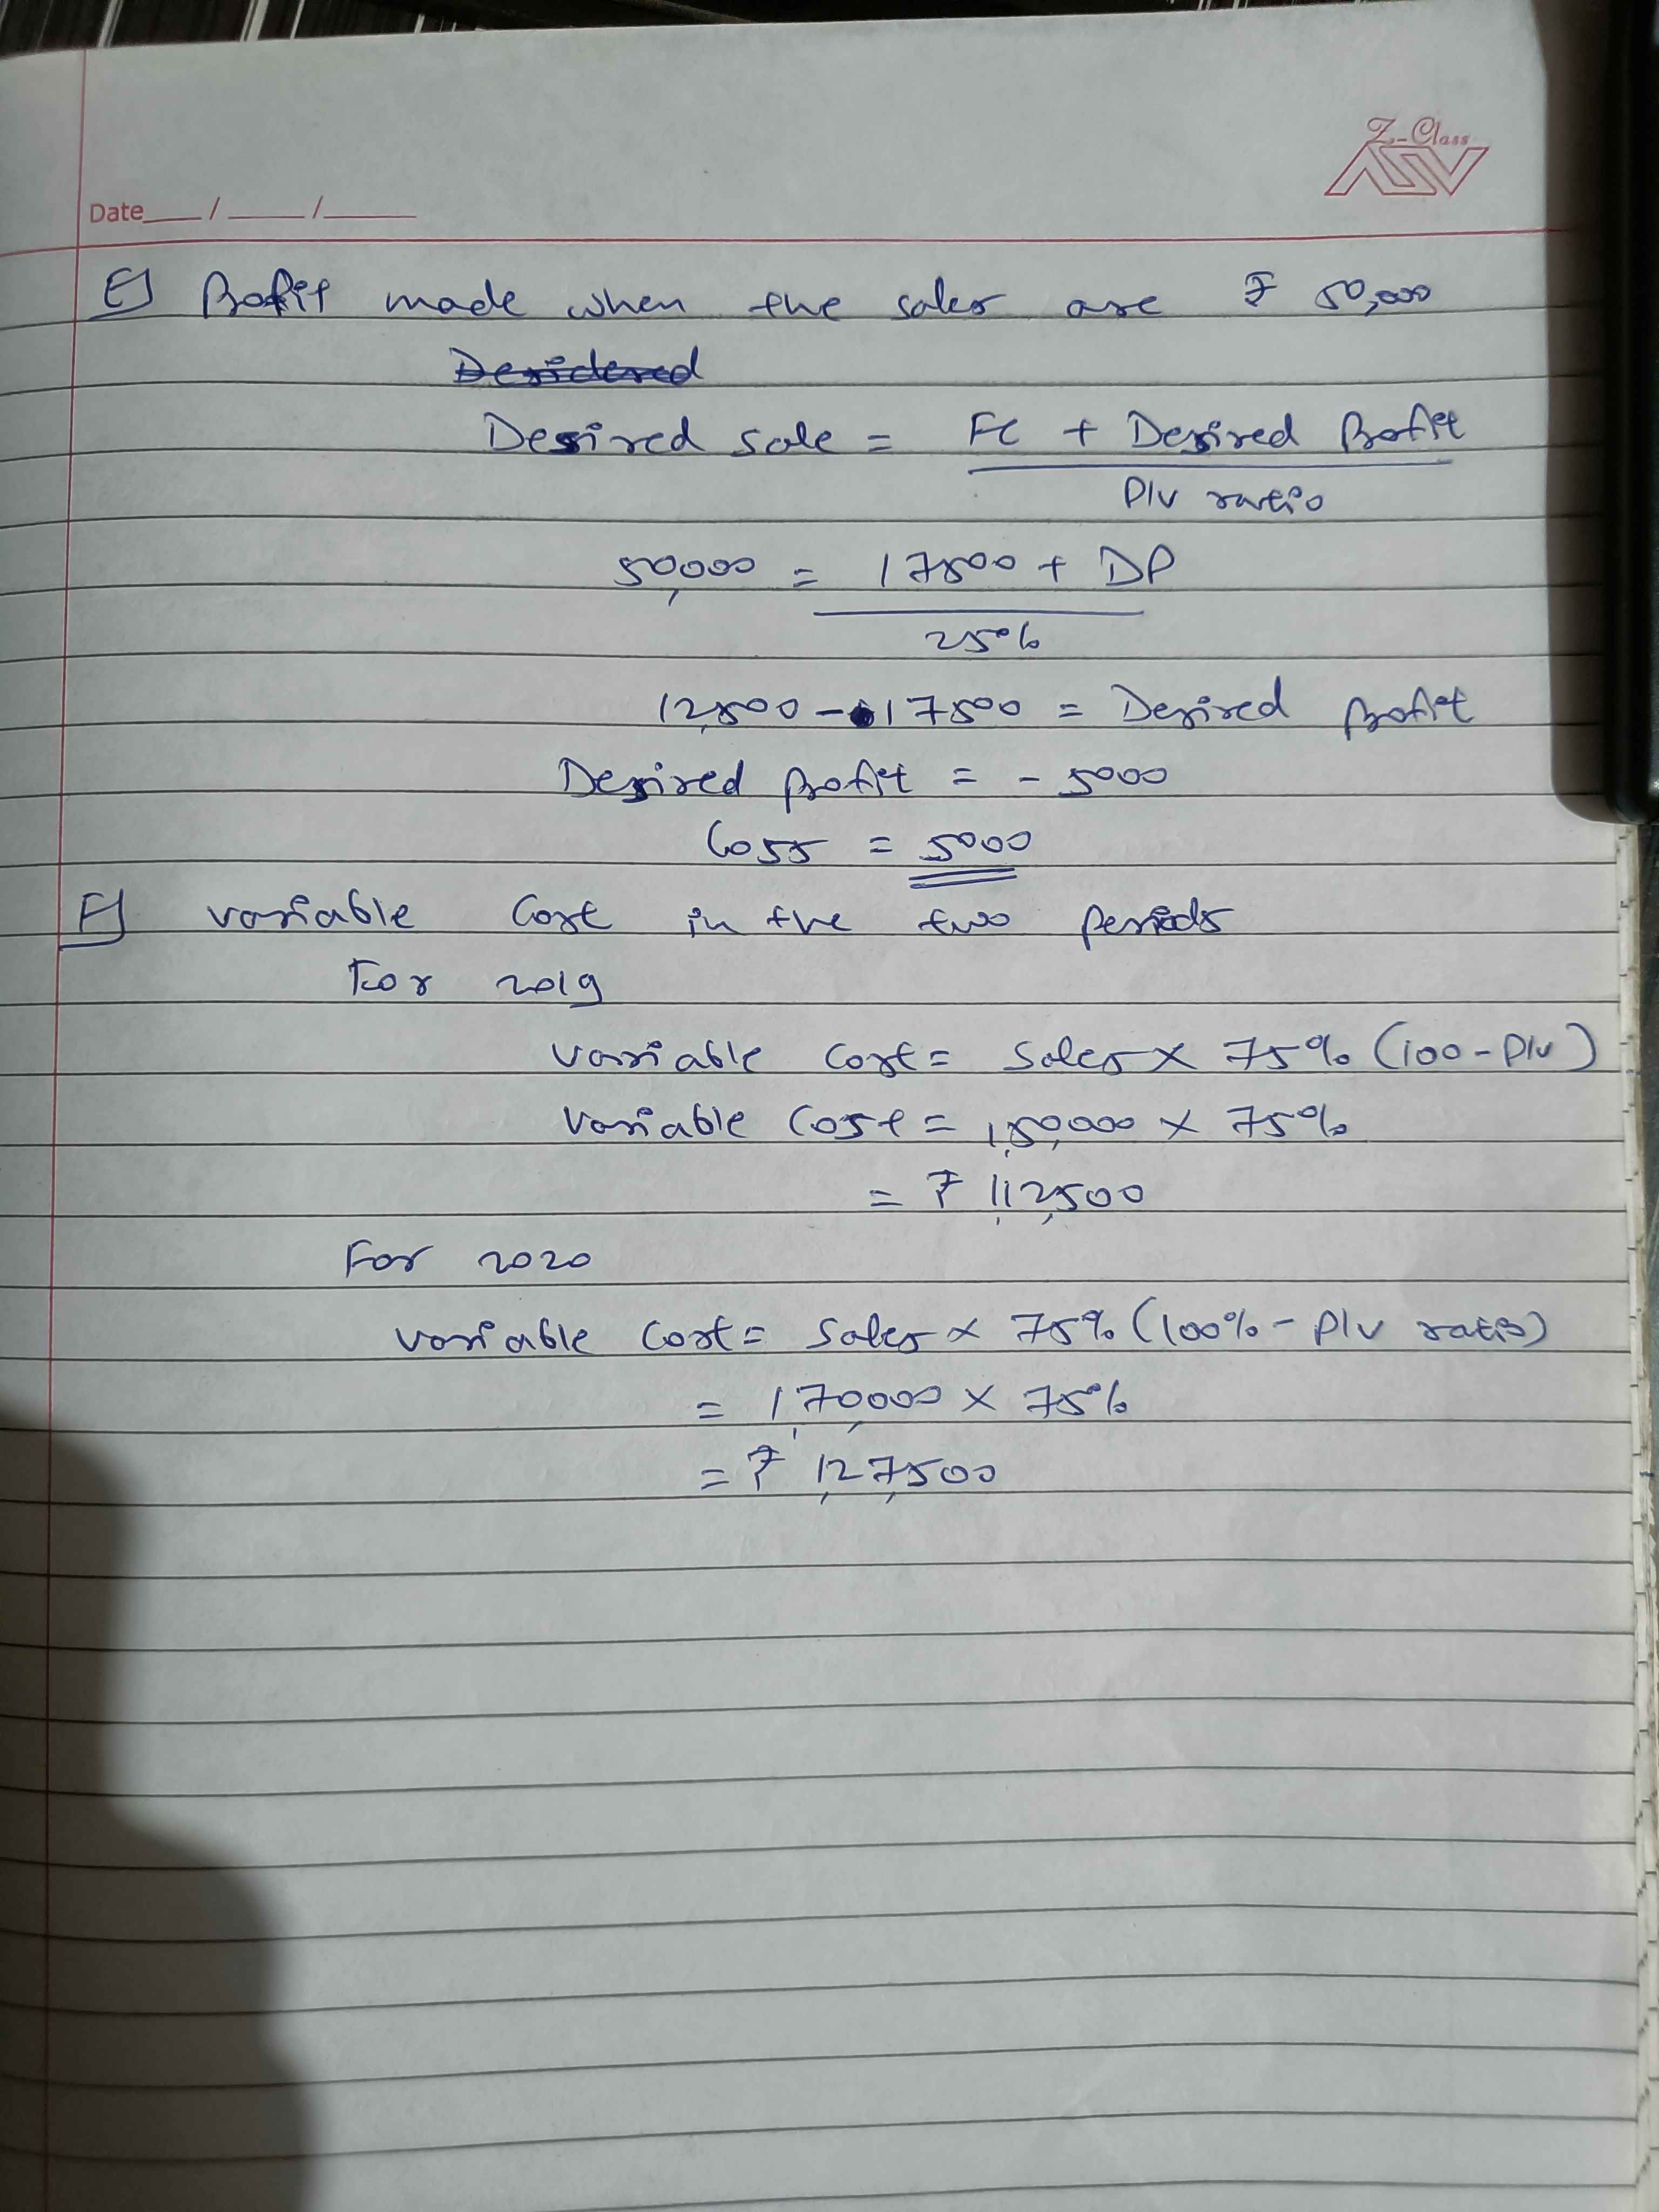 Z-Class
Date___/___/___
E] Profit made when the sales are ₹ 50,000
Desired sale = FC + Desired Profit
P/v ratio
50,000 = 17500 + DP
25%
12,500 - 17500 = Desired profit
Desired profit = - 5000
Loss = 5000
F] variable Cost in the two periods
For 2019
variable cost = Sales x 75% (100-P/v)
Variable Cost = 1,50,000 x 75%
= ₹ 1,12,500
For 2020
variable cost = Sales x 75% (100% - P/v ratio)
= 1,70,000 x 75%
= ₹ 1,27,500